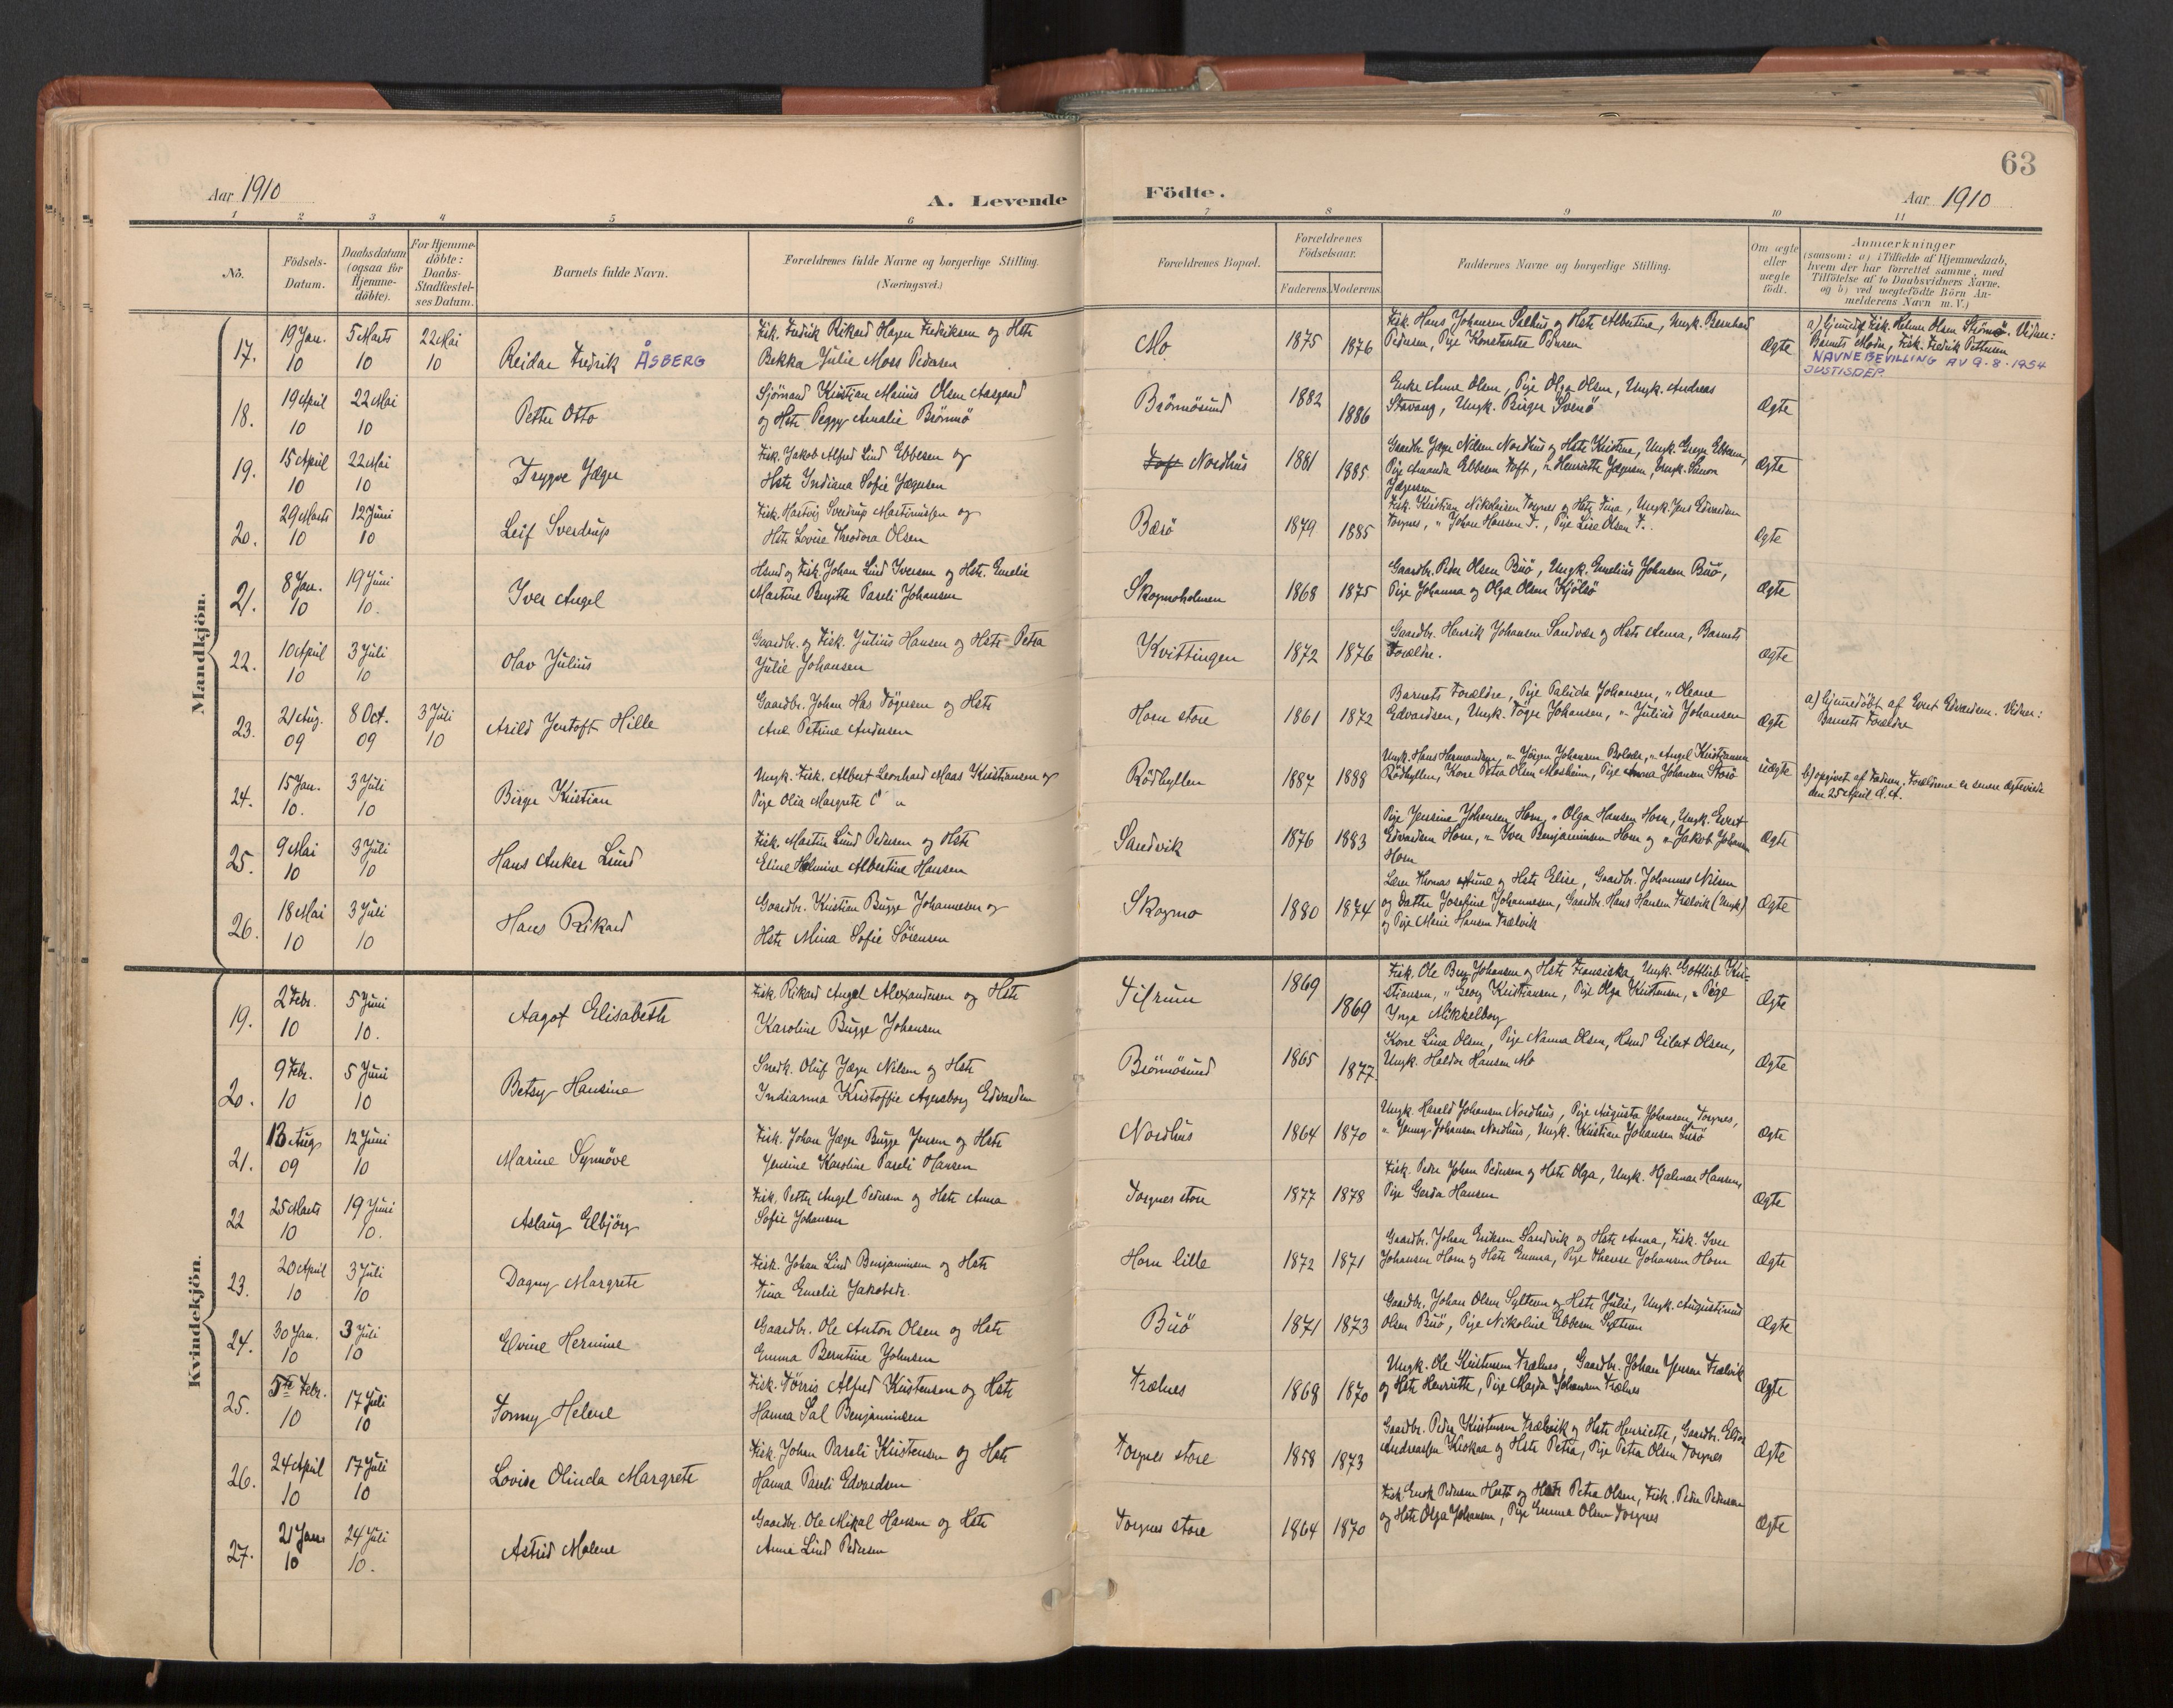 63
Aar 1910
A. Levende Födte.
Aar 1910
1 2 3 4 5 6 7 8 9 10 11
No.
Födsels-Datum.
Daabsdatum (ogsaa for Hjemme-döbte).
For Hjemme-döbte: Daabs-Stadfæstel-ses Datum.
Barnets fulde Navn.
Forældrenes fulde Navne og borgerlige Stilling.
(Næringsvei.)
Forældrenes Bopæl.
Forældrenes Födselsaar.
Faderens. Moderens.
Faddernes Navne og borgerlige Stilling.
Om ægte eller uægte födt.
Anmærkninger
(saasom: a) i Tilfælde af Hjemmedaab,
hvem der har forrettet samme, med
Tilföielse af to Daabsvidners Navne,
og b) ved uegtefödte Börn An-
melderens Navn m. V.)
Mandkjön.
17. 19 Jan. 10 5 Marts 10 22 Mai 10 Reidar Fredrik ÅSBERG
Fisk. Fredrik Rikard Hagen Fredriksen og Hstr
Bekka Julie Moss Pedersen
Mo 1875 1876
Fisk. Hans Johansen Salhus og Hstr Albertine, Ungk. Bernhard
Pedersen, Pige Konstanse Pedersen
Ægte
a) hjemmed. Fisk. Helmer Olsen Strömö. Vidner:
Barnets Moder, Fisk. Fredrik Pettersen
NAVNEBEVILLING AV 9.8.1954
JUSTISDEP.
18. 19 April 10 22 Mai 10 Petter Otto
Sjömand Kristian Marius Olsen Aasgaard
og Hstr Peggy Amalie Brönnö
Brönnösund 1882 1886
Enke Anne Olsen, Pige Olga Olsen, Ungk. Andreas
Stavang, Ungk. Birger Svenö
Ægte
19. 15 April 10 22 Mai 10 Trygve Jæger
Fisk. Jakob Alfred Lind Ebbesen og
Hstr Indiana Sofie Jægersen
Toft Nordhus 1881 1885
Gaardbr. Jæger Nilsen Nordhus og Hstr Kristine, Ungk. Ebbesen,
Pige Amanda Ebbesen Toft, " Henriette Jægersen, Ungk. Simon
Jægersen
Ægte
20. 29 Marts 10 12 Juni 10 Leif Sverdrup
Fisk. Hartvig Sverdrup Martinussen og
Hstr Lovise Theodora Olsen
Bærö 1879 1885
Fisk. Kristian Nikolaisen Torgnes og Hstr Tina, Ungk. Jens Edvardsen
Torgnes, " Johan Hansen T., Pige Lise Olsen T.
Ægte
21. 8 Jan. 10 19 Juni 10. Iver Angel
Hsmd og Fisk. Johan Lind Iversen og Hstr. Emelie
Martine Bergitte Pareli Johansen
Skogmoholmen 1868 1875
Gaardbr. Peder Olsen Buö, Ungk. Emelius Johnsen Buö,
Pige Johanna og Olga Olsen Kjölsö
Ægte
22. 10 April 10 3 Juli 10 Olav Julius
Gaardbr. og Fisk. Julius Hansen og Hstr Petra
Julie Johansen
Kvittingen 1872 1876
Gaardbr. Henrik Johansen Sandvær og Hstr Anna, Barnets
Forældre.
Ægte
23. 21 Aug. 09 8 Oct. 09 3 Juli 10 Arild Jentoft Hille
Gaardbr. Johan Has Tögersen og Hstr
Ane Petrine Andersen
Horn store 1861 1872
Barnets Forældre, Pige Palida Johansen, " Oleane
Edvardsen, Ungk. Töger Johansen, " Julius Johansen
Ægte
a) hjemmedöbt af Evert Edvardsen. Vidner:
Barnets Forældre
24. 15 Jan. 10. 3 Juli 10 Birger Kristian
Ungk. Fisk. Albert Leonhard Maas Kristiansen og
Pige Olia Margrete
Rödhyllen 1887 1888
Ungk. Hans Hermandsen, " Jörgen Johansen, " Angel Kristiansen
Rödhyllen, Kone Petra Olsen Mosheim, Pige Anna Johansen Storö
uægte
b) opgivet af Faderen. Forældrene er senere ægteviede
den 25 April d. A.
25. 9 Mai 10 3 Juli 10 Hans Anker Lund
Fisk. Martin Lund Pedersen og Hstr
Eline Helmine Albertine Hansen
Sandvik 1876 1883
Pige Jensine Johansen Horn, " Olga Hansen Horn, Ungk. Evert
Edvardsen Horn, " Iver Benjaminsen Horn og " Jakob Johansen
Horn
Ægte
26. 18 Mai 10 3 Juli 10 Hans Rikard
Gaardbr. Kristian Bugge Johannesen og
Hstr Mina Sofie Sörensen
Skogmo 1880 1874
Lærer Thomas Aune og Hstr Elise, Gaardbr. Johannes Nilsen
og Datter Josefine Johannesen, Gaardbr. Hans Hansen Trælvik (Ungk)
og Pige Marie Hansen Trælvik
Ægte
Kvindekjön.
19. 2 Febr. 10 5 Juni 10. Aagot Elisabeth
Fisk. Rikard Angel Alexandersen og Hstr
Karoline Bugge Johansen
Tilrum 1869 1869
Fisk. Ole Ben Johansen og Hstr Fransiska, Ungk. Gottlieb Kri-
stiansen, " Georg Kristiansen, Pige Olga Kristensen, " Pige
Inga Mikkelborg
Ægte
20. 9 Febr. 10 5 Juni 10 Betsy Hansine
Snedk. Oluf Jæger Nilsen og Hstr
Indianna Kristoffie Agersborg Edvardsen
Brönnösund 1865 1877
Kone Lina Olsen, Pige Nanna Olsen, Hsmd Eilert Olsen,
Ungk. Haldor Hansen Mo
Ægte
21. 13 Aug 09 12 Juni 10 Marine Synnöve
Fisk. Johan Jæger Bugge Jensen og Hstr
Jensine Karoline Pareli Hansen
Nordhus 1864 1870
Ungk. Harald Johansen Nordhus, Pige Augusta Johansen, Torgnes,
" Jenny Johansen Nordhus, Ungk. Kristian Johansen
Ægte
22 25 Marts 10 19 Juni 10. Aslaug Elbjörg
Fisk. Petter Angel Pedersen og Hstr Anna
Sofie Johansen
Torgnes store 1877 1878
Fisk. Peder Johan Pedersen og Hstr Olga, Ungk. Hjalmar Hansen,
Pige Gerda Hansen
Ægte
23. 20 April 10 3 Juli 10 Dagny Margrete
Fisk. Johan Lind Benjaminsen og Hstr
Tina Emelie Jakobsdr.
Horn lille 1872 1871
Gaardbr. Johan Eriksen Sandvik og Hstr Anna, Fisk. Iver
Johansen Horn og Hstr Emma, Pige Therese Johansen Horn
Ægte
24. 30 Jan. 10 3 Juli 10 Elvine Hermine
Gaardbr. Ole Anton Olsen og Hstr
Emma Berntine Johnsen
Buö 1871 1873
Gaardbr. Johan Olsen Sylteren og Hstr Julie, Ungk. Augustinus
Olsen Buö, Pige Nikoline Ebbesen
Ægte
25. 5te Febr. 10 17 Juli 10 Tonny Helene
Fisk. Törris Alfred Kristensen og Hstr
Hanna Sal Benjaminsen
Trælnes 1868 1870
Ungk. Ole Kristensen Trælnes, Gaardbr. Johan Jensen Trælvik
og Hstr Henriette, Pige Magda Johansen Trælnes
Ægte
26. 24 April 10 17 Juli 10 Lovise Olinda Margrete
Fisk. Johan Pareli Kristensen og Hstr
Hanna Pareli Edvardsen
Torgnes store 1858 1873
Gaardbr. Peder Kristensen Trælvik og Hstr Henriette, Gaardbr.
Andreassen Krokaa og Hstr Petra, Pige Petra Olsen Torgnes
Ægte
27. 21 Jan 10 24 Juli 10. Astrid Malene
Gaardbr. Ole Mikal Hansen og Hstr
Anna Lind Pedersen
Torgnes store 1864 1870
Fisk. Enok Pedersen og Hstr Petra Olsen, Fisk. Peder Pedersen
og Hstr Olga Johansen, Pige Emma Olsen Torgnes
Ægte